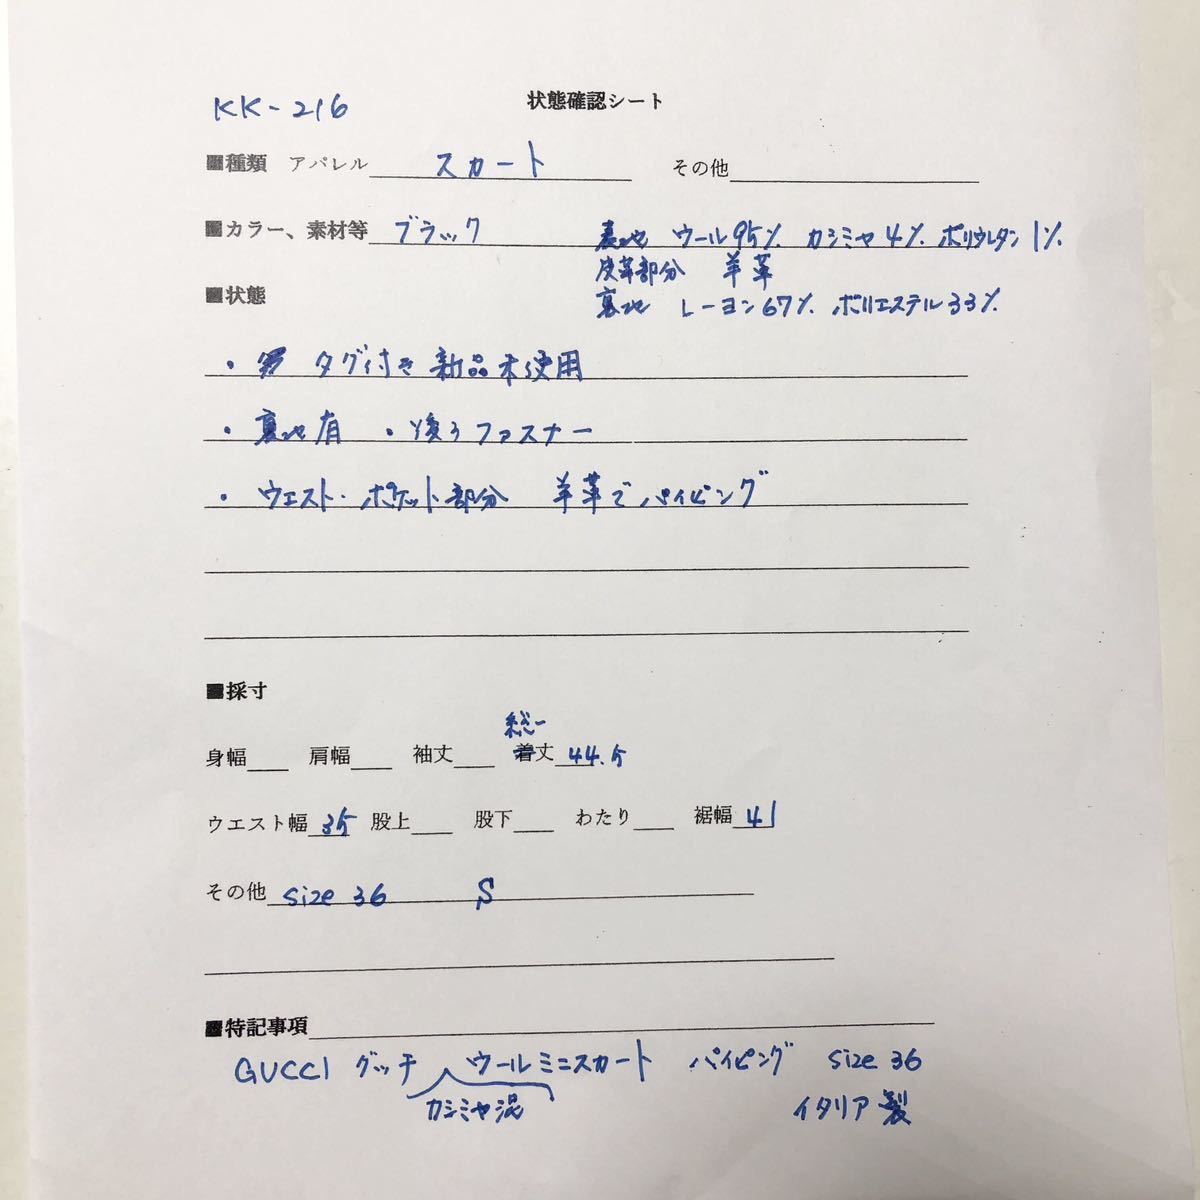 KK-216
状態確認シート
■種類 アパレル スカート その他
■カラー、素材等 ブラック 表地 ウール95% カシミヤ4% ポリウレタン1%
皮革部分 羊革
■状態
裏地 レーヨン67% ポリエステル33%
・タグ付き 新品未使用
・裏地有 ・後ろファスナー
・ウエスト・ポケット部分 羊革でパイピング
■採寸
総
身幅 肩幅 袖丈 着丈 44.5
ウエスト幅 35 股上 股下 わたり 裾幅 41
その他 size 36 S
■特記事項
GUCCI グッチ ウールミニスカート パイピング size 36
カシミヤ混 イタリア製